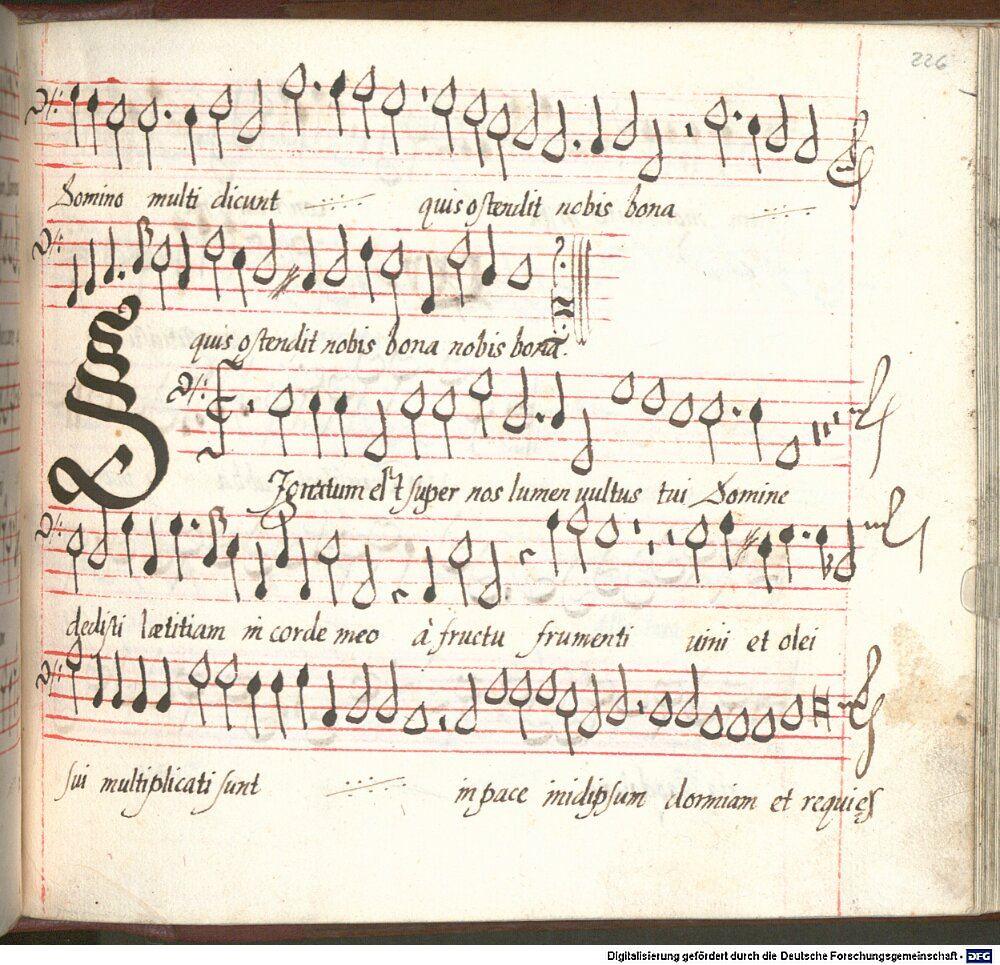 226
Domino multi dicunt quis ostendit nobis bona
quis ostendit nobis bona nobis bona.
Signatum est super nos lumen uultus tui Domine
dedisti lætitiam in corde meo à fructu frumenti uini et olei
sui multiplicati sunt in pace inidipsum dormiam et requies
Digitalisierung gefördert durch die Deutsche Forschungsgemeinschaft - DFG